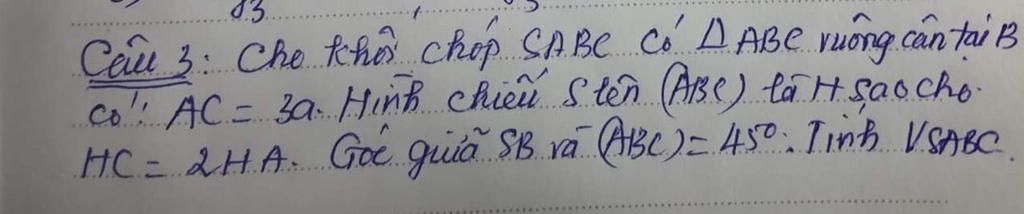 83
Câu 3: Cho khối chóp SABC có Δ ABC vuông cân tại B
có: AC = 3a. Hình chiếu S lên (ABC) là H sao cho.
HC = 2HA. Góc giữa SB và (ABC) = 45°. Tính VSABC.